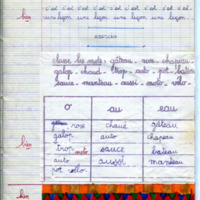 c'est c'est c'est c'est c'est
lun une leçon une leçon une leçon
exercice
classe les mots : gâteau - rose - chapeau
galop - chaud - trop - auto - pot - bateau
sauce - manteau - aussi - moto - vélo.
o au eau
rose chaud gâteau
galop auto chapeau
bien trop moto sauce bateau
auto aussi manteau
pot vélo
bien